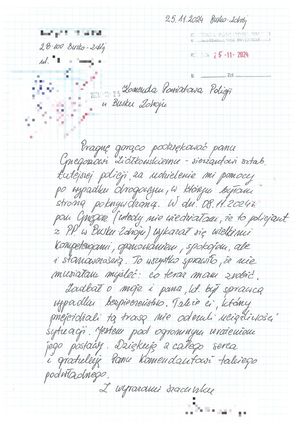 25.11.2024 Busko-Zdrój
28-100 Busko-Zdrój
ul.
25-11-2024
Komenda Powiatowa Policji
w Busku Zdroju
Pragnę gorąco podziękować panu
Grzegorzowi - sierżantowi sztab.
tutejszej policji, za udzielenie mi pomocy
po wypadku drogowym, w którym byłam
stroną pokrzywdzoną. W dn. 08.11.2024r
pan Grzegorz (wtedy nie wiedziałam, że to policjant
z PP w Busku Zdroju) wykazał się wielkimi
kompetencjami, opanowaniem, spokojem, ale
i stanowczością. To wszystko sprawiło, że nie
musiałam myśleć: co teraz mam zrobić.
Zadbał o moje i pana, kt. był sprawcą
wypadku bezpieczeństwo. Także ci, którzy
przejeżdżali tą trasą nie odczuli uciążliwości
sytuacji. Jestem pod ogromnym wrażeniem
jego postawy. Dziękuję z całego serca
i gratuluję Panu Komendantowi takiego
podwładnego.
Z wyrazami szacunku